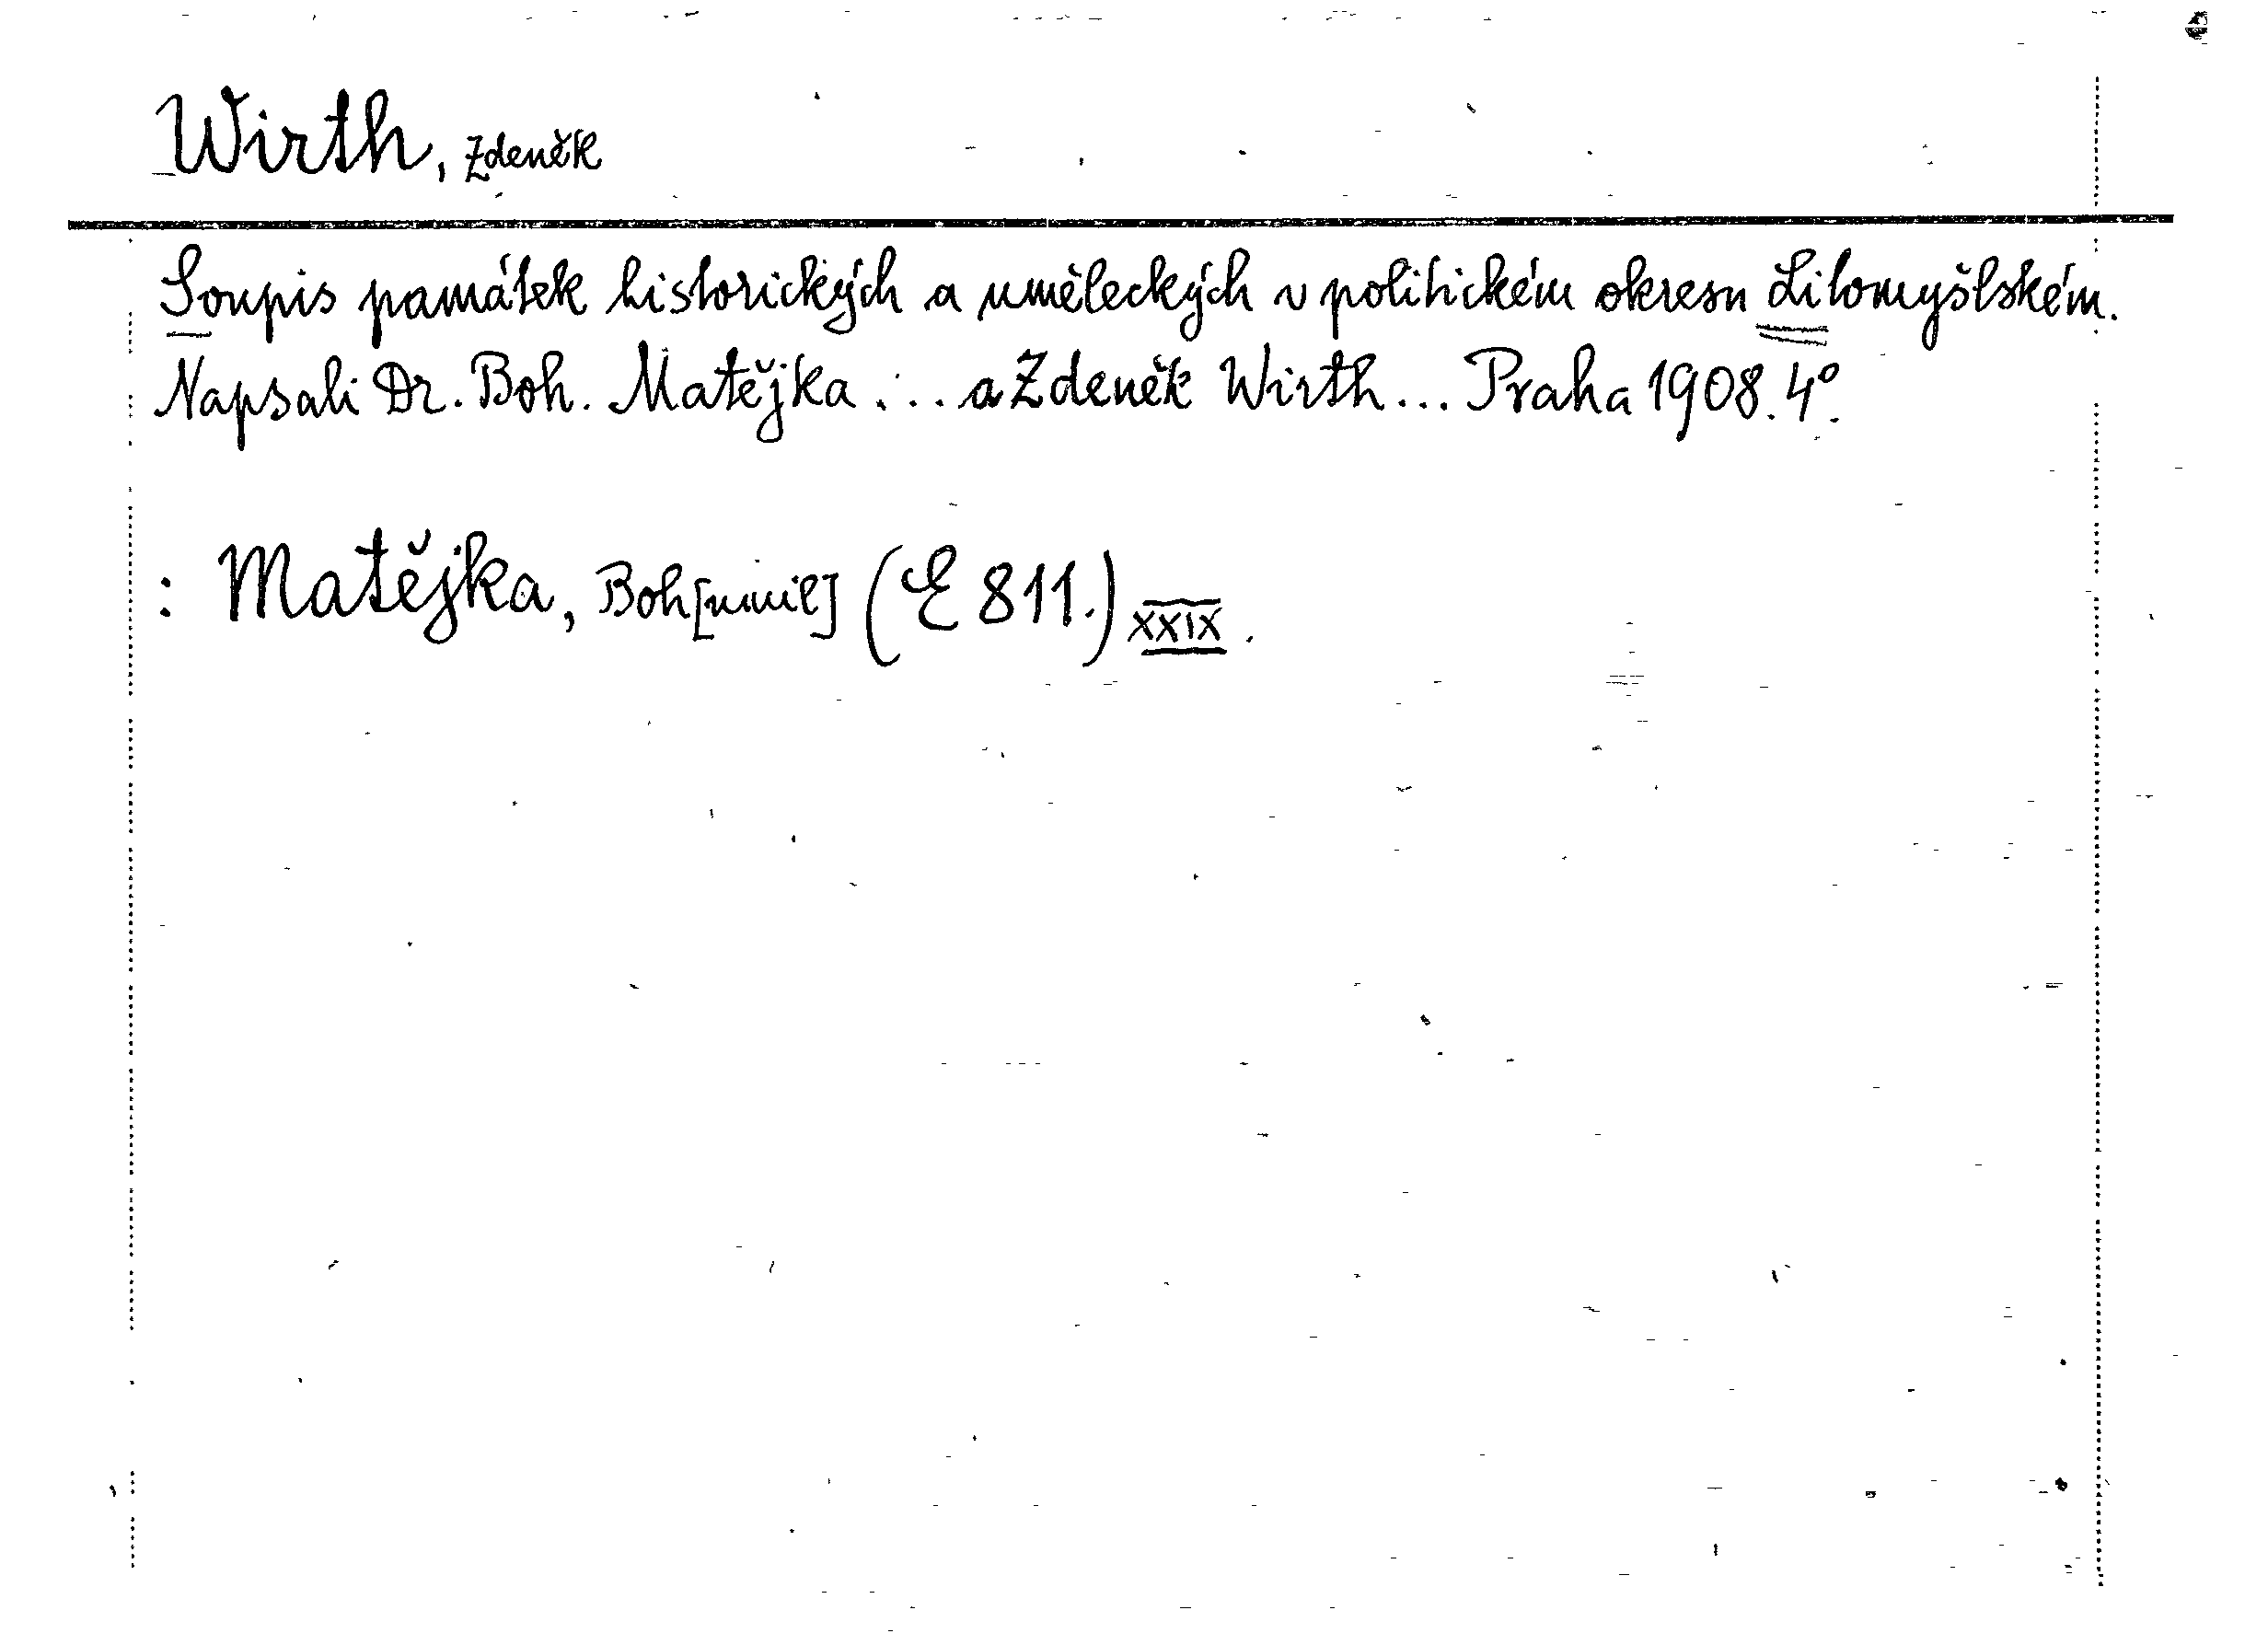 Wirth, Zdeněk
Soupis památek historických a uměleckých v politickém okresu Litomyšlském.
Napsali Dr. Boh. Matějka ... a Zdeněk Wirth... Praha 1908. 4°.
: Matějka, Boh[umil] (E 811.) XXIX.